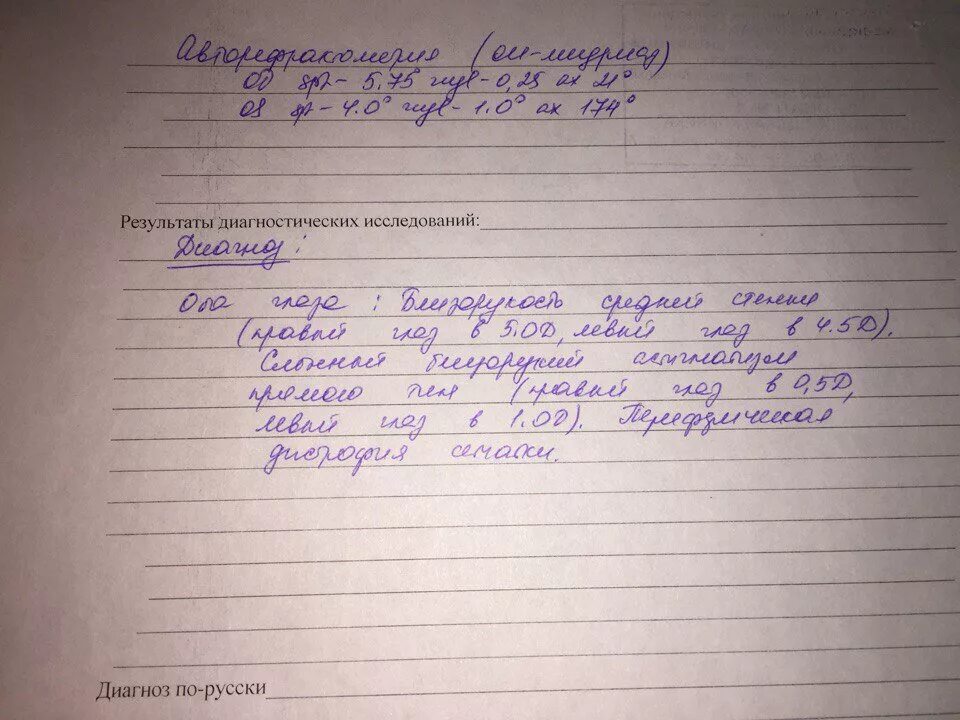 Авторефрактометрия (ои-мидриаз)
OD sph - 5.75° cyl - 0,25 ax 21°
OS sp - 4.0° cyl - 1.0° ax 174°
Результаты диагностических исследований:
Диагноз:
Оба глаза: Близорукость средней степени
(правый глаз в 5.0D, левый глаз в 4.5D).
Сложный близорукий астигматизм
прямого типа (правый глаз в 0,5D,
левый глаз в 1.0D). Периферическая
дистрофия сетчатки.
Диагноз по-русски